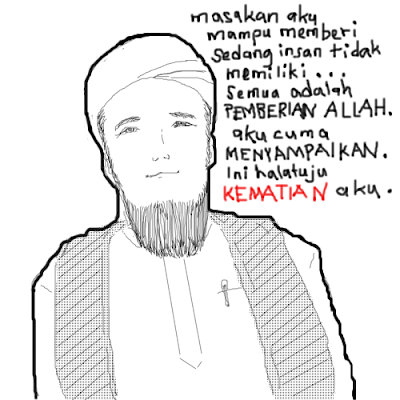 masakan aku
mampu memberi
sedang insan tidak
memiliki...
semua adalah
PEMBERIAN ALLAH.
aku cuma
MENYAMPAIKAN.
Ini halatuju
KEMATIAN aku.